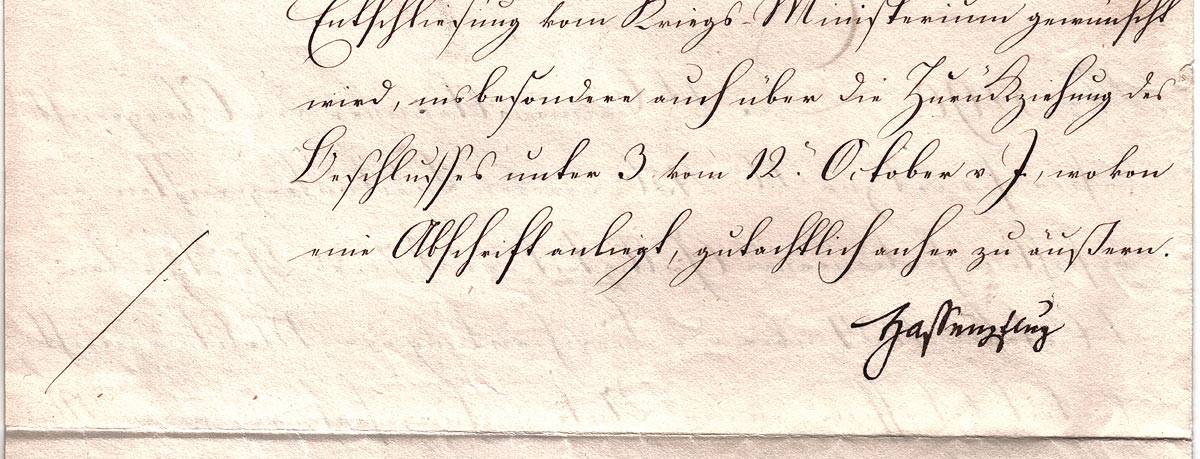 Entschließung vom Kriegs-Ministerium gewünscht
wird, insbesondere auch über die Zurückziehung des
Beschlusses unter 3 vom 12. October v. J., wovon
eine Abschrift anliegt, gutachtlich anher zu äußern.
Hassenpflug